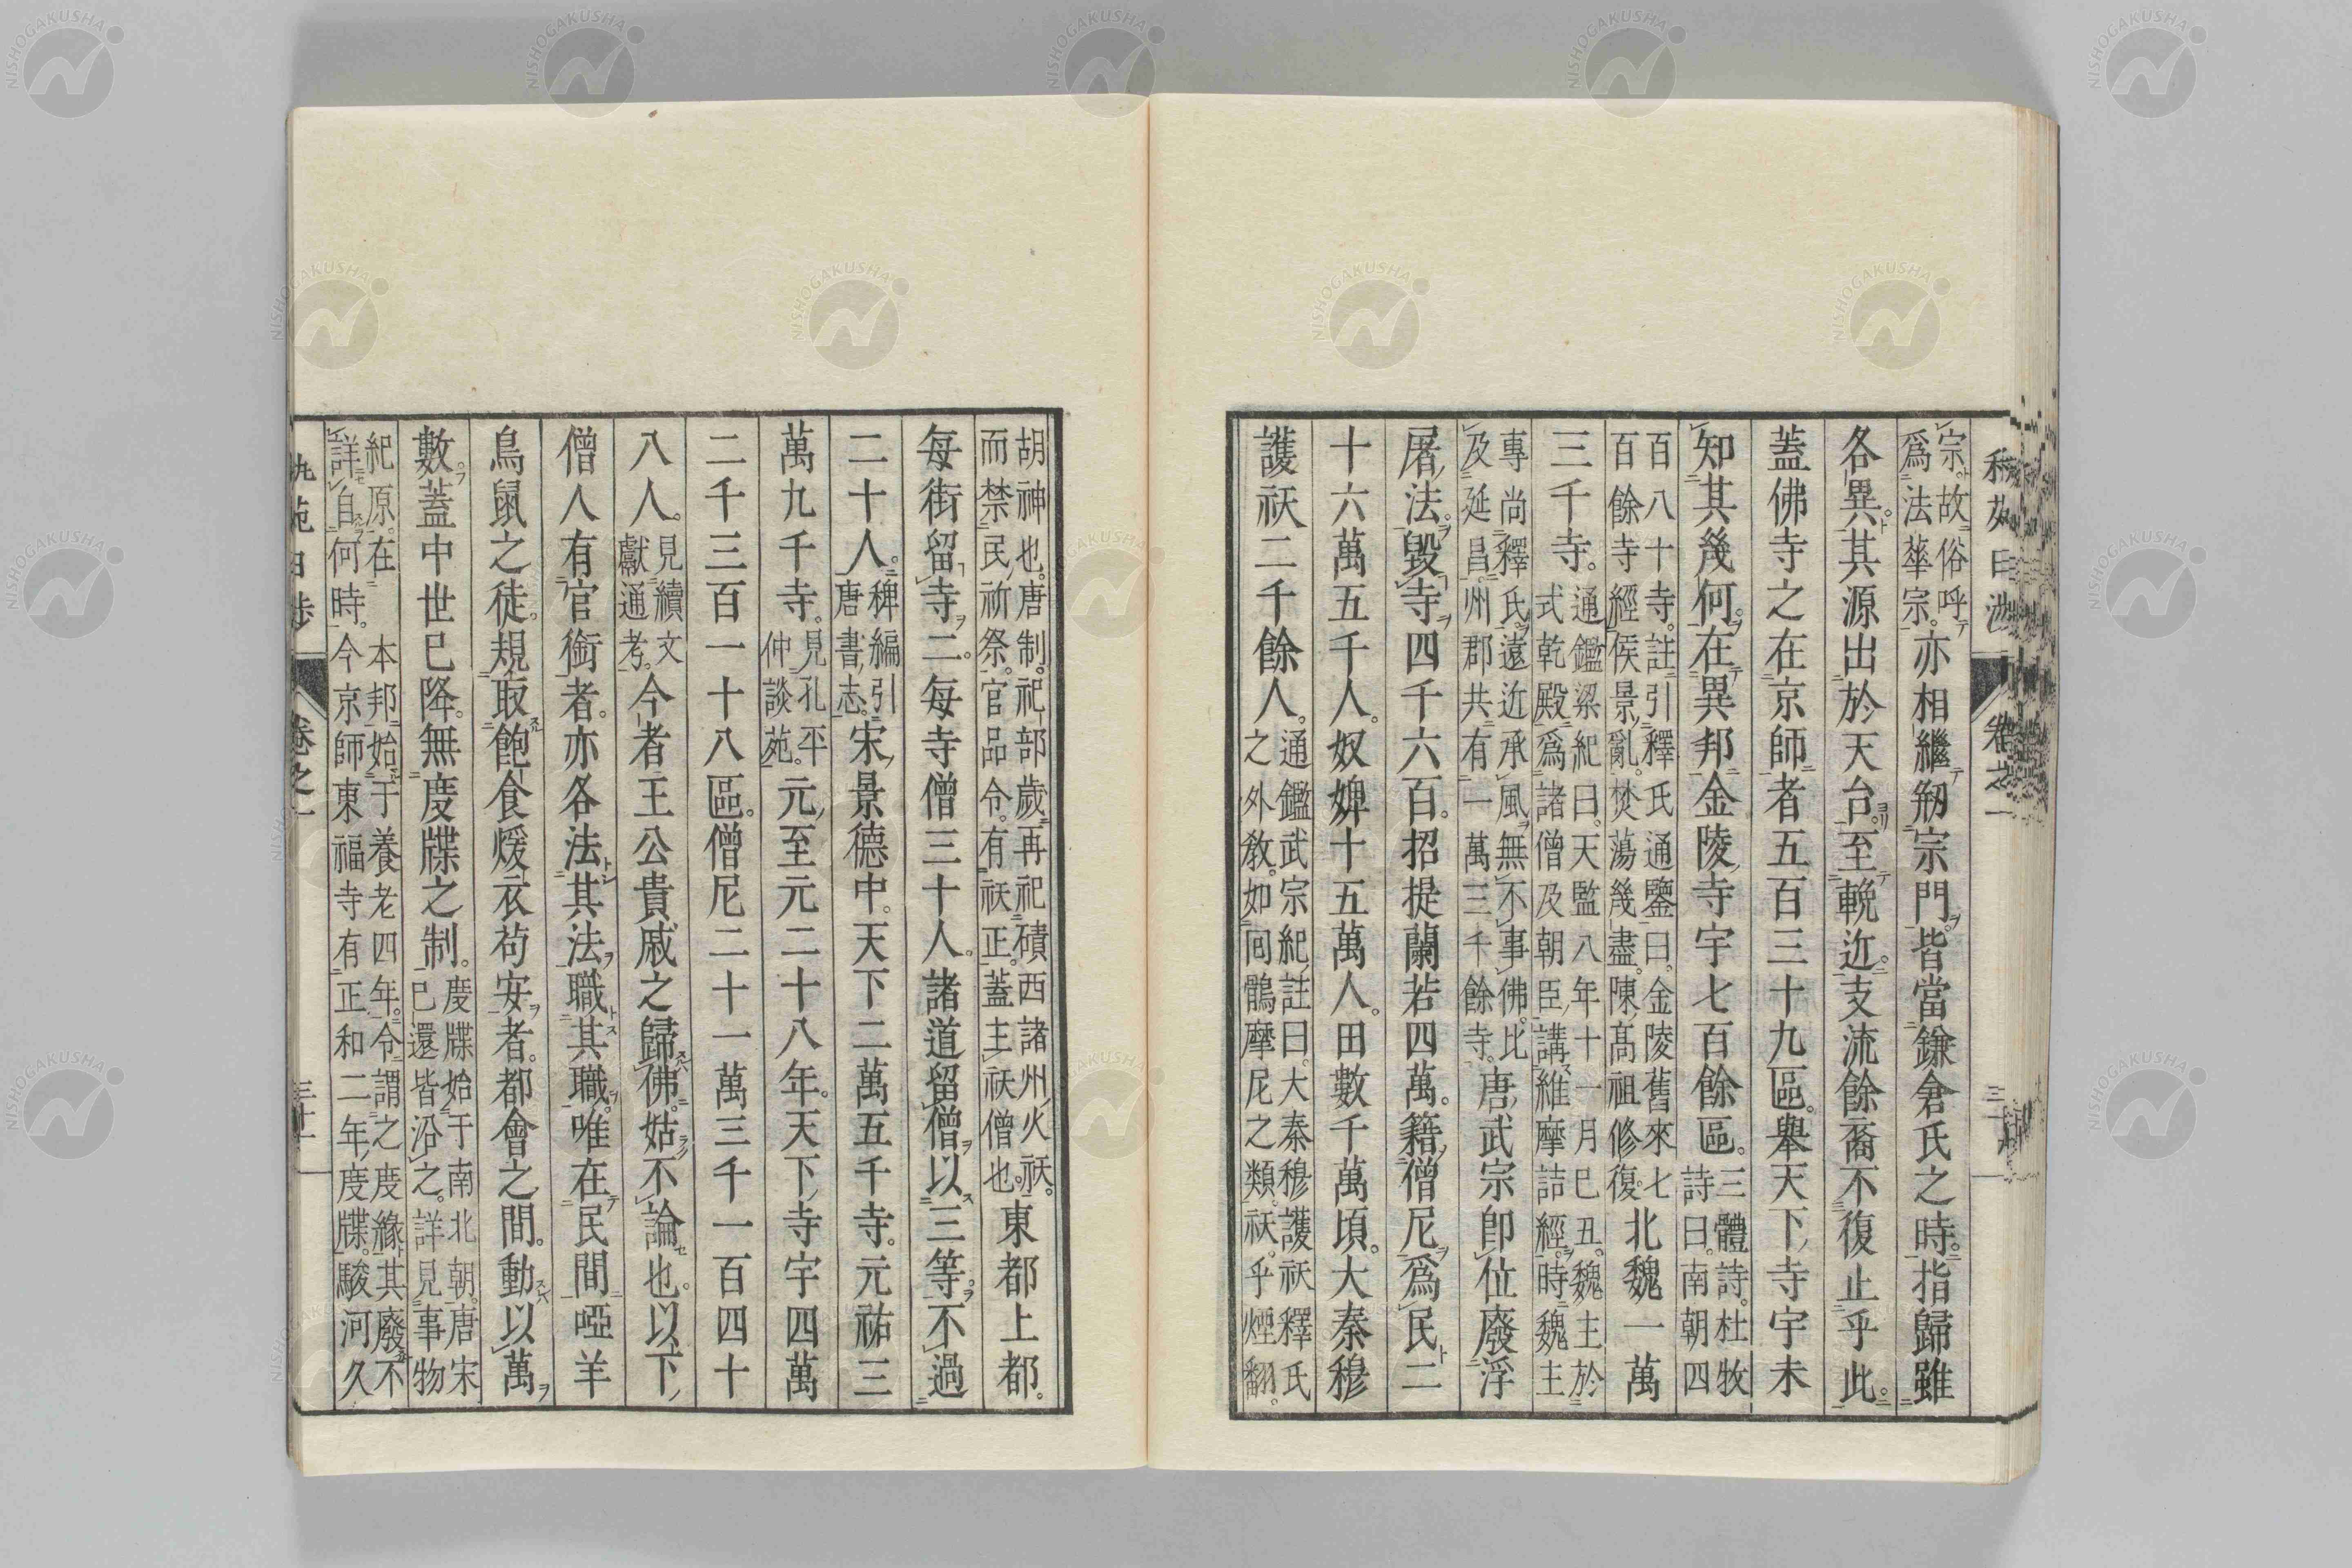 宗。故俗呼
爲法華宗。
亦相繼剏宗門。皆當鎌倉氏之時。指歸雖
各異。其源出於天台。至輓近。支流餘裔不復止乎此。
蓋佛寺之在京師者五百三十九區。舉天下寺宇未
知其幾何。在異邦金陵寺宇七百餘區。
三體詩。杜牧
詩曰。南朝四
百八十寺。註引釋氏通鑒曰。金陵舊來七
百餘寺經侯景亂。焚蕩幾盡。陳高祖修復。
北魏一萬
三千寺。
通鑑梁紀曰。天監八年十一月己丑。魏主於
式乾殿爲諸僧及朝臣講維摩詰經。時魏主
專尚釋氏。遠近承風。無不事佛。比
及延昌。州郡共有一萬三千餘寺。
唐武宗卽位廢浮
屠法。毀寺四千六百。招提蘭若四萬。籍僧尼爲民二
十六萬五千人。奴婢十五萬人。田數千萬頃。大秦穆
護祆二千餘人。
通鑑武宗紀註曰。大秦穆護祆釋氏
之外教。如回鶻摩尼之類。祆。乎煙翻。
胡神也。唐制。祀部歲再祀磧西諸州火祆。
而禁民祈祭。官品令。有祆正。蓋主祆僧也。
東都上都。
每街留寺二。每寺僧三十人。諸道留僧以三等。不過
二十人。
稗編引
唐書志。
宋景德中。天下二萬五千寺。元祐三
萬九千寺。
見孔平
仲談苑。
元至元二十八年。天下寺宇四萬
二千三百一十八區。僧尼二十一萬三千一百四十
八人。
見續文
獻通考。
今者王公貴戚之歸佛。姑不論也。以下
僧人有官銜者。亦各法其法。職其職。唯在民間啞羊
鳥鼠之徒。規取飽食煖衣苟安者。都會之間。動以萬
數。蓋中世已降。無度牒之制。
度牒始于南北朝。唐宋
已還皆沿之。詳見事物
紀原。在本邦始于養老四年。令謂之度緣。其廢不
詳自何時。今京師東福寺有正和二年度牒。駿河久
卷之一